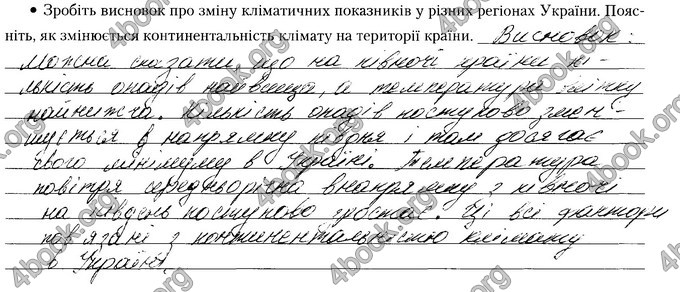 • Зробіть висновок про зміну кліматичних показників у різних регіонах України. Пояс-
ніть, як змінюється континентальність клімату на території країни. Висновок:
Можна сказати, що на півночі країни кі-
лькість опадів найвища, а температура влітку
найнижча. Кількість опадів поступово змен-
шується в напрямку півдня і там досягає
свого мінімуму в Україні. Температура
повітря середньорічна в напрямку з півночі
на південь поступово зростає. Ці всі фактори
пов'язані з континентальністю клімату
в Україні.
4book.org